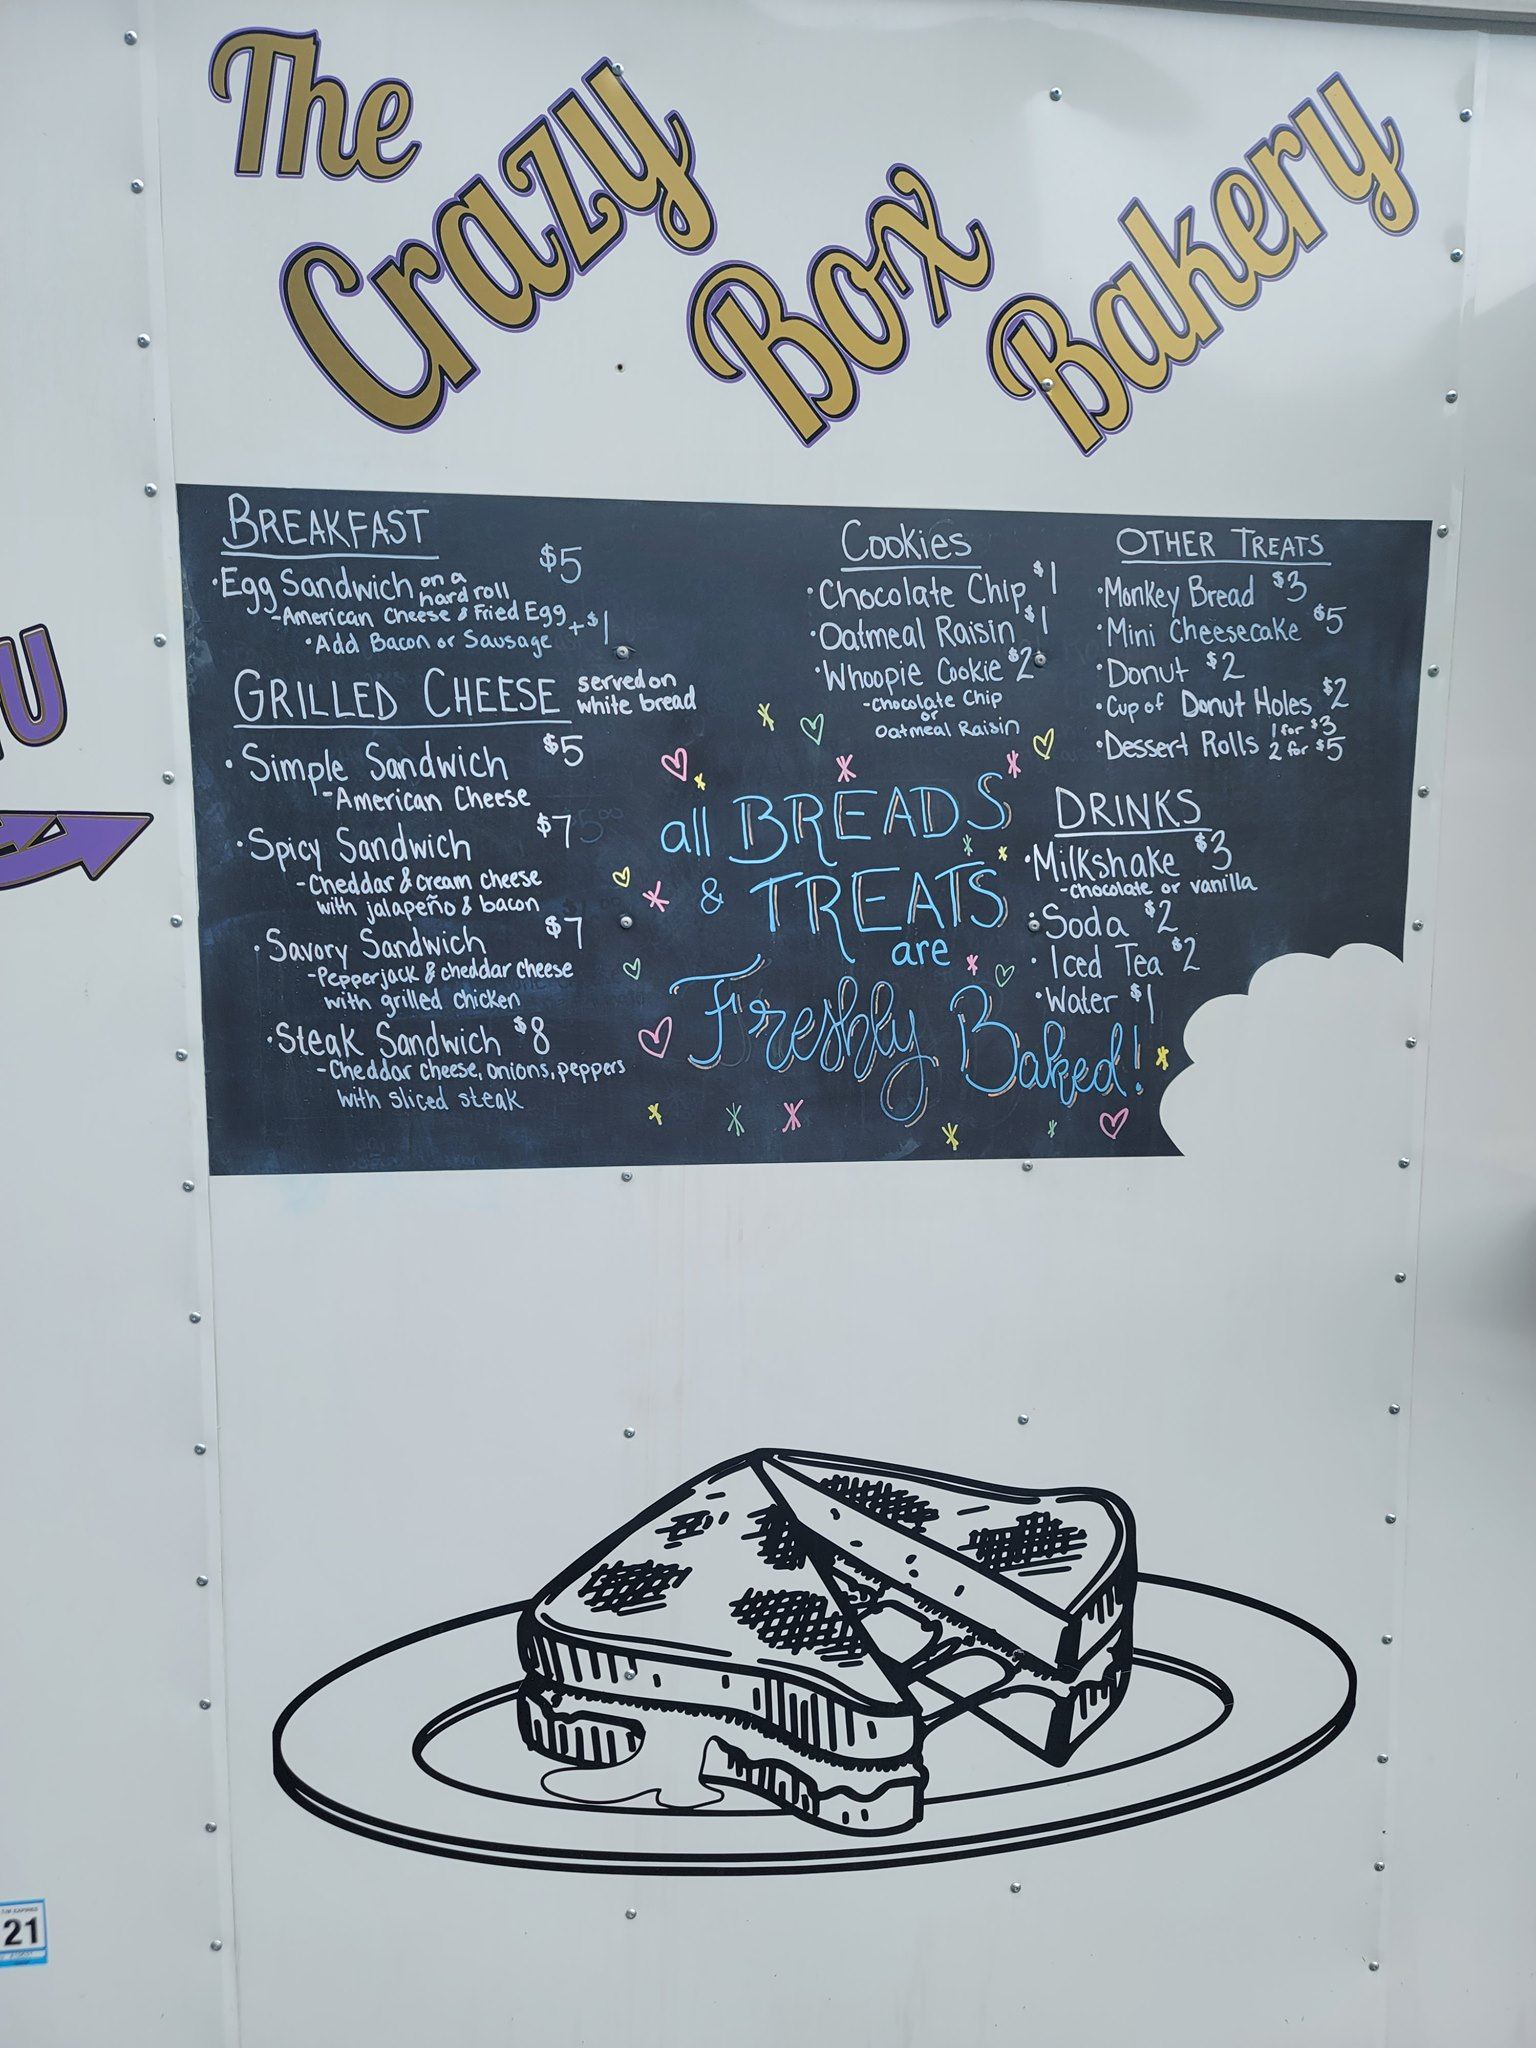 The
Crazy
Box
Bakery
BREAKFAST
•Egg Sandwich on a hard roll $5
-American Cheese & Fried Egg
•Add Bacon or Sausage +$1
GRILLED CHEESE served on white bread
•Simple Sandwich $5
-American Cheese
•Spicy Sandwich $7
-Cheddar & cream cheese
with jalapeño & bacon
•Savory Sandwich $7
-Pepperjack & cheddar cheese
with grilled chicken
•Steak Sandwich $8
-Cheddar cheese, onions, peppers
with sliced steak
Cookies
•Chocolate Chip $1
•Oatmeal Raisin $1
•Whoopie Cookie $2
-Chocolate Chip
or
Oatmeal Raisin
OTHER TREATS
•Monkey Bread $3
•Mini Cheesecake $5
•Donut $2
•Cup of Donut Holes $2
•Dessert Rolls 1 for $3
2 for $5
DRINKS
•Milkshake $3
-chocolate or vanilla
•Soda $2
•Iced Tea $2
•Water $1
all BREADS
& TREATS
are
Freshly Baked!
U
21